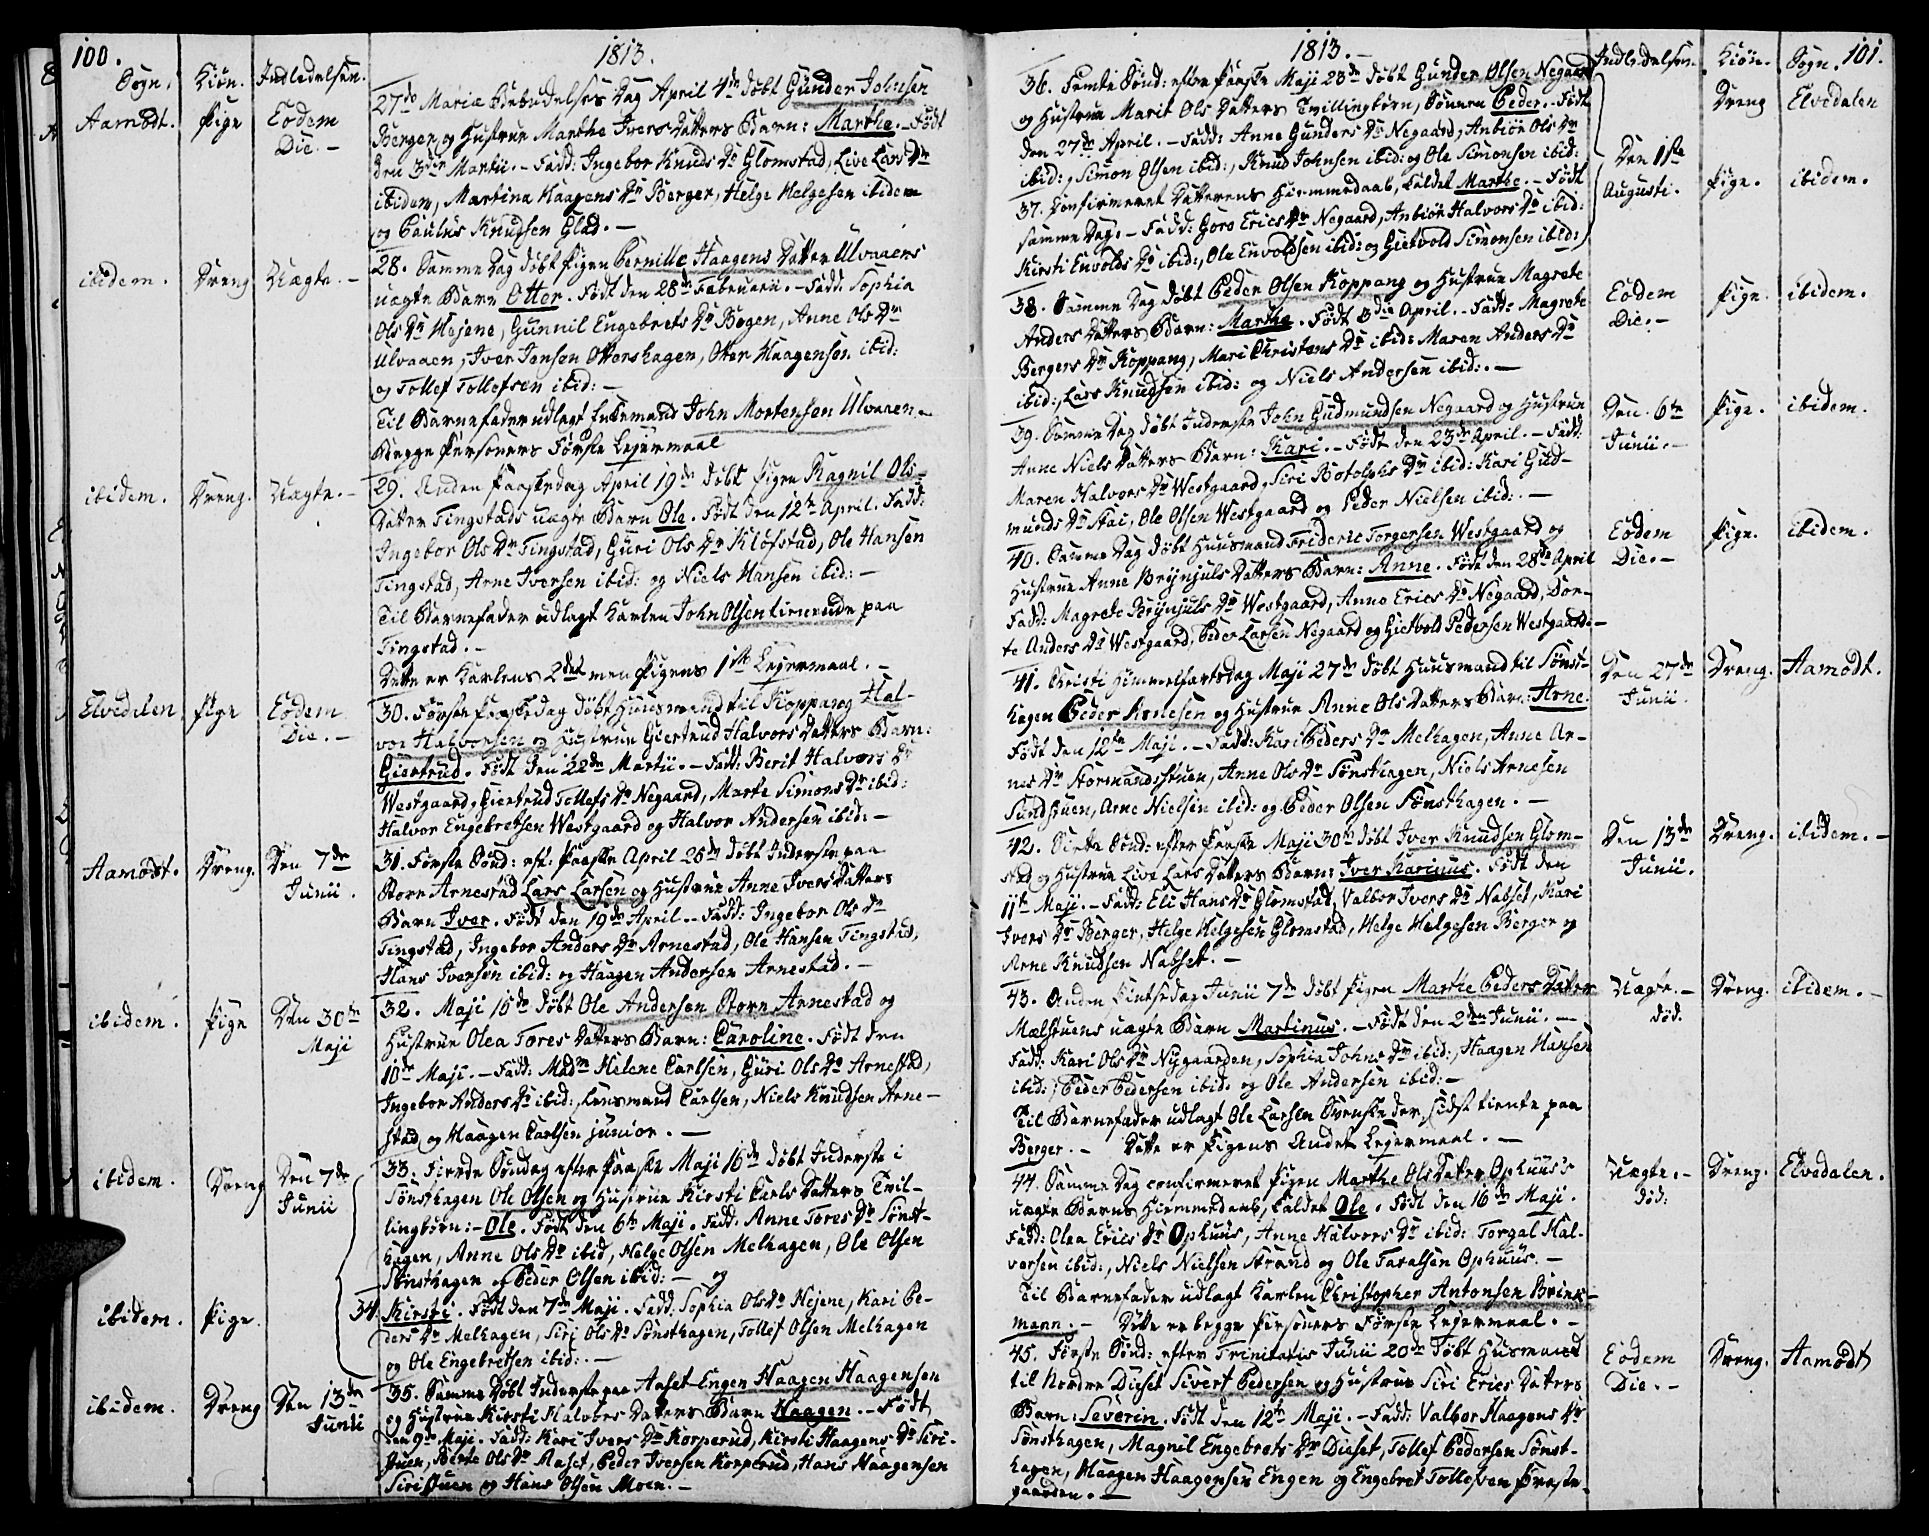 100.
1813.
Sogn. Kiön. Indledelsen.
Aamodt. Pige Eodem
Die. -
27de Mariæ Bebudelses Dag April 4de döbt Gunder Johnsen
Berger og Hustrue Marthe Ivers Datters Barn: Marthe. - Födt
den 3die Martii. - Fadd: Ingebor Knuds Dr Glomstad, Live Lars Dr
ibidem, Martina Haagens Dr Berger, Helge Helgesen ibidem
og Paulus Knudsen Glad. -
ibidem. Dreng Uægte. -
28. Samme Dag döbt Pigen Pernille Haagens Datter Ulvaaens
uægte Barn Otter. Födt den 28de Februarii. - Fadd: Sophia
Ols Dr Hejene, Gunnil Engebrets Dr Bogen, Anne Ols Dr
Ulvaaen, Iver Jensen Ottershagen, Otter Haagensen ibid:
og Tollef Tollefsen ibid: -
Til Barnefader udlagt Enkemand John Mortensen Ulvaaen. -
Begge Personers Förste Lejermaal
ibidem. Dreng. Uægte. -
29. Anden Paaskedag April 19de döbt Pigen Ragnil Ols
Datter Tingstads uægte Barn Ole. Födt den 12te April. Fadd:
Ingebor Ols Dr Tingstad, Guri Ols Dr Klöfstad, Ole Hansen
Tingstad, Arne Iversen ibid: og Niels Hansen ibid: -
Til Barnefader udlagt Karlen John Olsen tienende paa
Tingstad. -
Dette er Karlens 2det men Pigens 1ste Lejermaal. -
Elvedalen Pige Eodem
Die. -
30. Förste Paaskedag döbt Huusmand til Koppang Hal-
vor Halvorsen og Hustrue Giertrud Halvors Datters Barn:
Giertrud. Födt den 22de Martii. - Fadd: Berit Halvors Dr
Westgaard, Giertrud Tollefs Dr Negaard, Marte Simons Dr ibid:
Halvor Engebretsen Westgaard og Halvor Andersen ibid: -
Aamodt. Dreng. Den 7de
Junii.
31. Förste Sönd: eft: Paaske April 25de döbt Inderste paa
Store Arnestad Lars Larsen og Hustrue Anne Ivers Datters
Barn Iver. Födt den 19de April. - Fadd: Ingebor Ols Dr
Tingstad, Ingebor Anders Dr Arnestad, Ole Hansen Tingstad,
Hans Iversen ibid: og Haagen Andersen Arnestad. -
ibidem. Pige Den 30te
Maji
32. Maji 15de döbt Ole Andersen Store Arnestad og
Hustrue Olea Tores Datters Barn: Caroline. Födt den
10de Maji. - Fadd: Madm Helene Carlsen, Guri Ols Dr Arnestad,
Ingebor Anders Dr ibid:, Lensmand Carlsen, Niels Knudsen Arne-
stad og Haagen Carlsen junior. -
ibidem. Dreng Den 7de
Junii
33. Fierde Söndag efter Paaske Maji 16de döbt Inderste i
Sönsthagen Ole Olsen og Hustrue Kirsti Carls Datters Tvil-
lingbörn: - Ole. Födt den 6te Maji. Fadd: Anne Tores Dr Sönst-
hagen, Anne Ols Dr ibid, Helge Olsen Melhagen, Ole Olsen
Sönsthagen og Peder Olsen ibid: - og
ibidem. Pige.
34. Kirsti. Födt den 7de Maji. Fadd: Sophia Ols Dr Hejene, Kari Pe-
ders Dr Melhagen, Siri Ols Dr Sönsthagen, Tollef Olsen Melhagen
og Ole Engebretsen ibid: -
ibidem. Dreng Den 13de
Junii
35. Samme Döbt Inderste paa Aaset Engen Haagen Haagensen
og Hustrue Kirsti Halvors Datters Barn Haagen. - Födt
den 9de Maji. Fadd: Kari Ivers Dr Korperud, Kirsti Haagens Dr Siri-
stuen, Berte Ols Dr Aaset, Peder Iversen Korperud, Hans Haagensen
Siristuen og Hans Olsen Moen. -
1813. -
Indledelsen. Kiön. Sogn. 101.
36. Femte Sönd: efter Paaske Maji 23de döbt Gunder Olsen Negaard
og Hustrue Marit Ols Datters Tvillingbörn, Sönnen Peder. - Födt
den 27de April. - Fadd: Anne Gunders Dr Negaard, Anbiör Ols Dr
ibid:, Simon Olsen ibid:, Knud Johnsen ibid: og Ole Simonsen ibid:
Dreng Elvedalen
Den 1ste
Augusti.
37. Confirmeret Datterens Hiemmedaab, kaldet Marthe. - Födt
samme Dag. - Fadd: Goro Erics Dr Negaard, Anbiör Halvors Dr ibid:
Kirsti Envolds Dr ibid:, Ole Envoldsen ibid: og Gietvold Simonsen ibid:
Pige. ibidem.
38. Samme Dag döbt Peder Olsen Koppang og Hustrue Magrete
Anders Datters Barn: Marthe. Födt 3die April. - Fadd: Magrete
Bergers Dr Koppang, Mari Christens Dr ibid: Maren Anders Dr
ibid:, Lars Knudsen ibid: og Niels Andersen ibid:. -
Eodem
Die. - Pige. ibidem.
39. Samme Dag döbt Inderste John Gudmundsen Negaard og Hustrue
Anne Niels Datters Barn: Kari. - Födt den 23de April. - Fadd:
Maren Halvors Dr Westgaard, Siri Botolphs Dr ibid: Kari Gud-
munds Dr Stai, Ole Olsen Westgaard og Peder Nielsen ibid:. -
Den 6te
Junii. - Pige. ibidem.
40. Samme Dag döbt Huusmand Frideric Torgersen Westgaard og
Hustrue Anne Brynjuls Datters Barn: Anne. Födt den 28de April
Fadd: Magrete Brynjuls Dr Westgaard, Anne Erics Dr Negaard, Dor-
te Anders Dr Westgaard, Peder Larsen Negaard og Gietvold Pedersen Westgaard. -
Eodem
Die. - Pige. ibidem.
41. Christi Himmelfartsdag Maji 27de döbt Huusmand til Sönst-
hagen Peder Arnesen og Hustrue Anne Ols Datters Barn: Arne.
Födt den 12te Maji. - Fadd: Kari Peders Dr Melhagen, Anne Ar-
nes Dr Stormandsstuen, Anne Ols Dr Sönsthagen, Niels Arnesen
Sundstuen, Arne Nielsen ibid: og Peder Olsen Sönsthagen. -
Den 27de
Junii. Dreng. Aamodt.
42. Siette Sönd: efter Paaske Maji 30te döbt Iver Knudsen Glom-
stad og Hustrue Live Lars Datters Barn: Iver Karinus. Födt den
11te Maji. - Fadd: Eli Hans Dr Glomstad, Valbor Ivers Dr Nabset, Kari
Ivers Dr Berger, Helge Helgesen Glomstad, Helge Helgesen Berger og
Arne Knudsen Nabset. -
Den 13de
Junii. Dreng. ibidem. -
43. Anden Pintsedag Junii 7de döbt Pigen Marthe Peders Datter
Mælstuens uægte Barn Martinus. - Födt den 2den Junii. -
Fadd: Kari Ols Dr Nygaarden, Sophia Johns Dr ibid:, Haagen Hansen
ibid:, Peder Pedersen ibid: og Ole Andersen ibid: -
Til Barnefader udlagt Ole Larsen Svenske der sidst tiente paa
Berger. - Dette er Pigens Andet Lejermaal. -
Uægte. -
död. Dreng. ibidem. -
44. Samme Dag confirmeret Pigen Marthe Ols Datter Ophuus's
uægte Barns Hiemmedaab, kaldet Ole. Födt den 16de Maji.
Fadd: Olea Erics Dr Ophuus, Anne Halvors Dr ibid: Torgal Hal-
vorsen ibid:, Niels Nielsen Strand og Ole Taralsen Ophuus. -
Til Barnefader udlagt Karlen Christopher Antonsen Brink-
mann. - Dette er begge Personers Förste Lejermaal. -
Uægte. -
död: Dreng. Elvedalen.
45. Förste Sönd: efter Trinitatis Junii 20de döbt Husmand
til Nordre Dieset Sivert Pedersen og Hustrue Siri Erics Datters
Barn: Severin. Födt den 12te Maji. - Fadd: Valbor Haagens Dr
Sönsthagen, Magnil Engebrets Dr Dieset, Tollef Pedersen Sönst-
hagen, Haagen Haagensen Engen og Engebret Tollefsen Præste-
gaarden. -
Eodem
Die. - Dreng. Aamodt